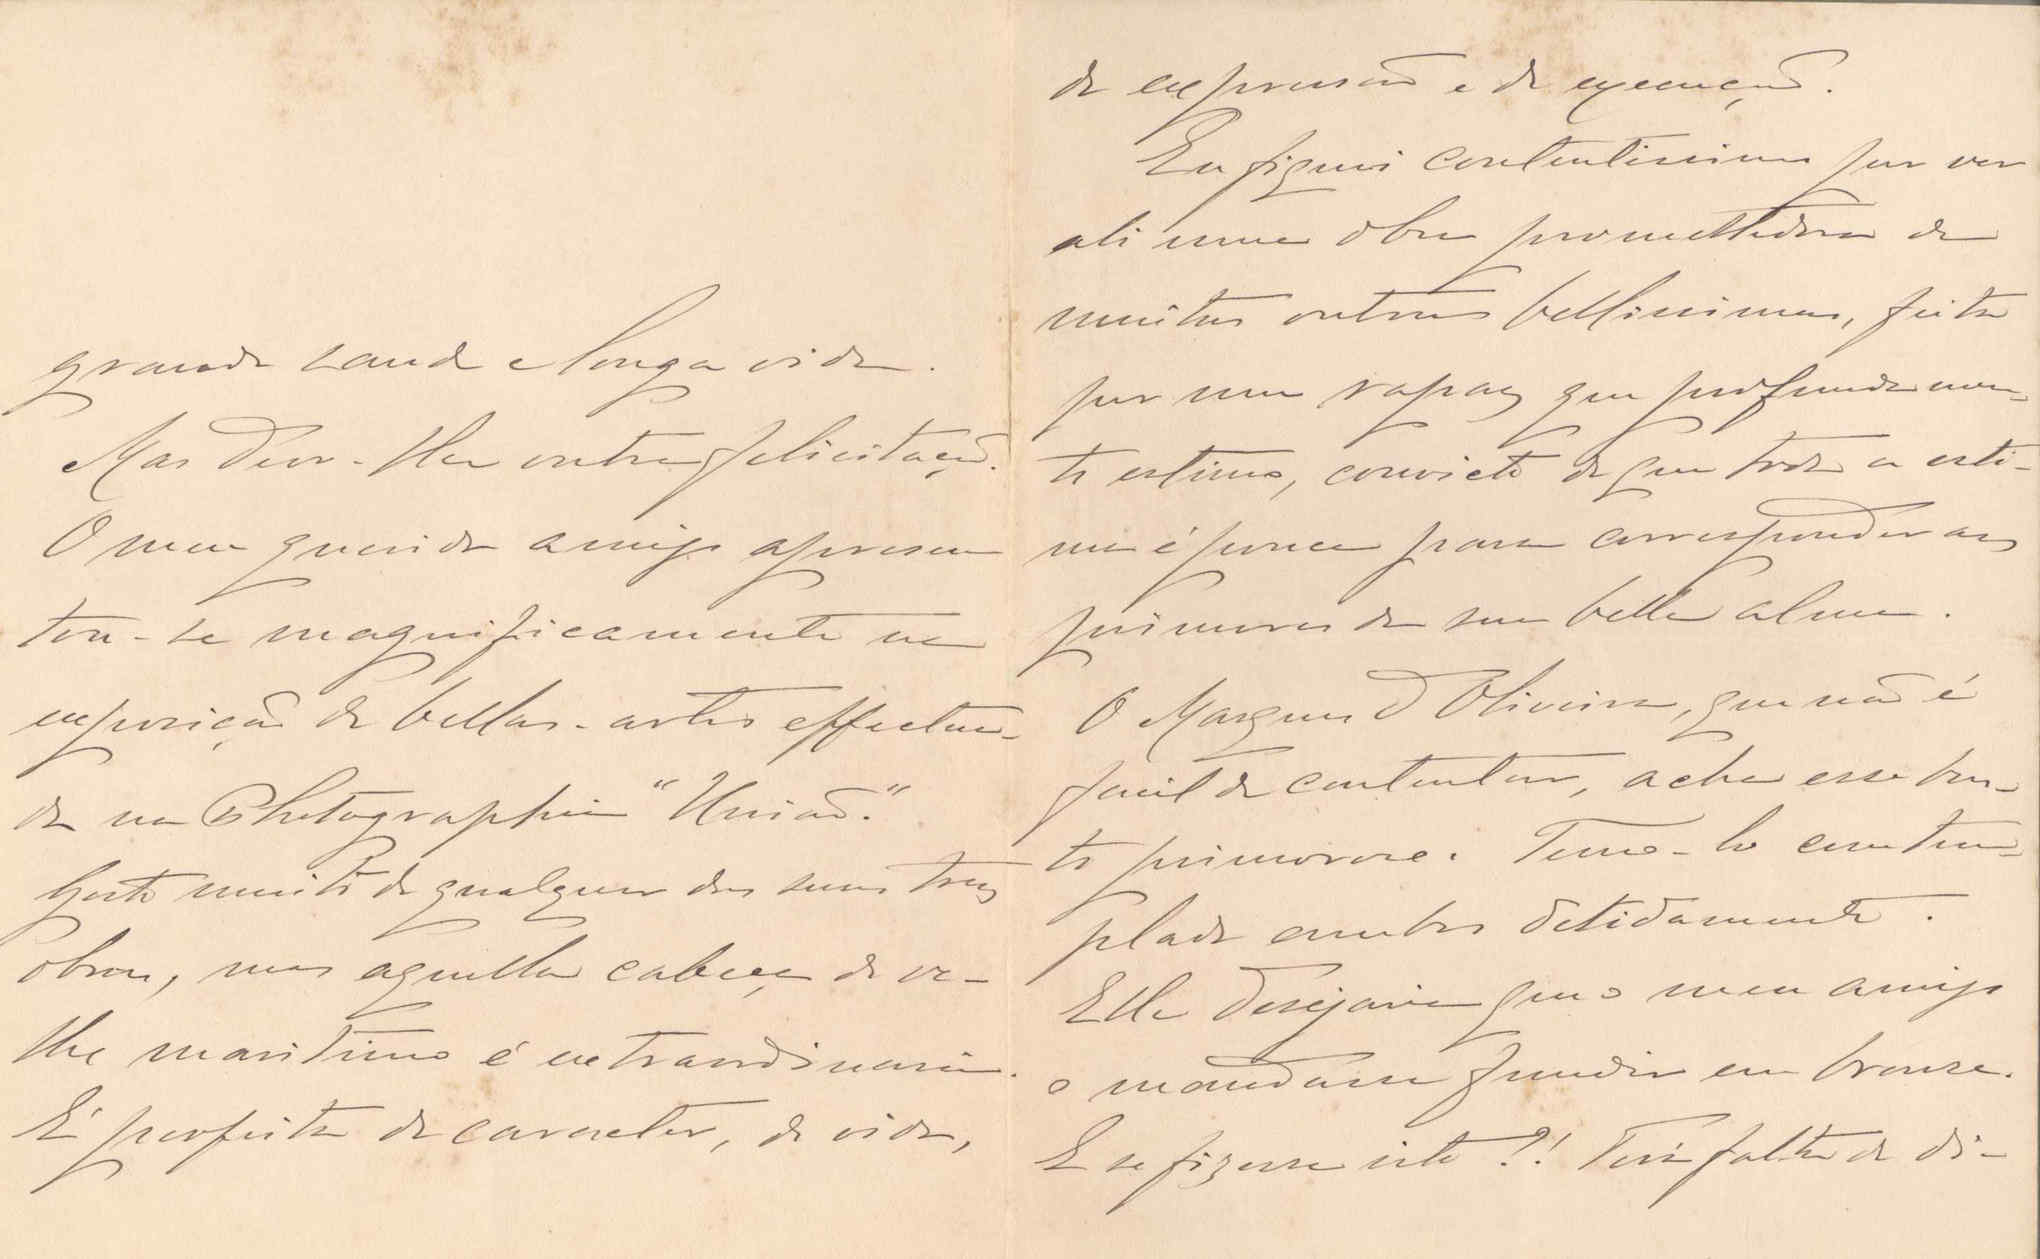 grande saude e longa vida.
Mas devo-lhe outra felicitação.
O meu querido amigo apresen
tou-se magnificamente na
exposição de bellas-artes effectua-
da na Photographia "União."
Gosto muito de qualquer das suas trez
obras, mas aquella cabeça de ve-
lho maritimo é extraordinaria.
É perfeita de caracter, de vida,
de expressão e de execução.
Eu fiquei contentissimo por ver
ali uma obra promettedora de
muitas outras bellissimas, feita
por um rapaz que profundamen-
te estimo, convicto de que toda a esti-
ma é pouca para corresponder aos
primores da sua bella alma.
O Marques d'Oliveira, que não é
facil de contentar, acha esse bus-
to primoroso. Temo-lo contem-
plado ambos detidamente.
Elle desejaria que o meu amigo
o mandasse fundir em bronze.
E se fizesse isto?! Terá falta de di-